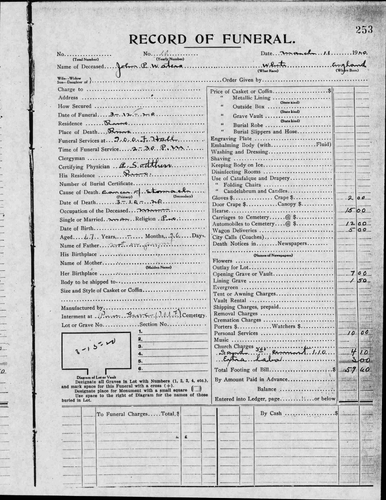 253
RECORD OF FUNERAL.
No. No. Date March 11 1920
(Total Number) (Yearly Number)
Name of Deceased John P. Waters White England
(What Race) (Where Born)
Charge to
Order Given by
How Secured
Date of Funeral 3-12-20
Residence
Place of Death
Funeral Services at I.O.O.F. Hall
Time of Funeral Service 2-30 P.M.
Clergyman
Certifying Physician
His Residence
Number of Burial Certificate
Cause of Death Cancer of Stomach
(Primary) (Secondary)
Date of Death 3-10-20
Occupation of the Deceased Miner
Single or Married Religion
Date of Birth
Aged 67 Years Months 26 Days
Name of Father
His Birthplace
Name of Mother
(Maiden Name)
Her Birthplace
Body to be shipped to
Size and Style of Casket or Coffin
Manufactured by
Interment at Cemetery
Lot or Grave No. Section No.
3-12-20
Diagram of Lot or Vault
Designate all Graves in Lot with Numbers (1, 2, 3, 4, etc.), and mark space for this Funeral with a cross (+).
Designate place for Monument with a small square
Use space to right of Diagram for the names of those buried in Lot.
Price of Casket or Coffin
" Metallic Lining
(State kind)
" Outside Box
(State kind)
" Grave Vault
(State kind)
" Burial Robe
(State kind)
" Burial Slippers and Hose
Engraving Plate
Embalming Body (with Fluid)
Washing and Dressing
Shaving
Keeping Body on Ice
Disinfecting Rooms
Use of Catafalque and Drapery
" Folding Chairs
" Candelabrum and Candles
Gloves $ Crape $ 2 00
Door Crape
Hearse 15 00
Carriages to Cemetery @ $
Automobiles to Cemetery @ $ 12 00
Wagon Deliveries 5 00
City Calls (Coaches)
Death Notices in Newspapers
Flowers
Outlay for Lot
Opening Grave or Vault 7 00
Lining Grave 1 50
Evergreen
Tent or Awning Charges
Vault Rental
Shipping Charges
Removal Charges
Cremation Charges
Porters $ Watchers $
Personal Services 10 00
Music
Church Charges
4 10
Total Footing of Bill
By Amount Paid in Advance
Balance
Entered into Ledger, page or below
To Funeral Charges, Total $
By Cash $